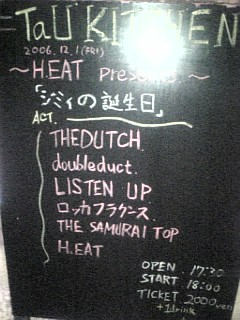 TaU KITCHEN
2006.12.1(FRI)
～H.EAT Presents.～
「ジミィの誕生日」
ACT.
THEDUTCH.
doubleduct.
LISTEN UP
ロッカフラクンス.
THE SAMURAI TOP
H.EAT
OPEN. 17:30
START. 18:00
TICKET. 2000yen
+1drink